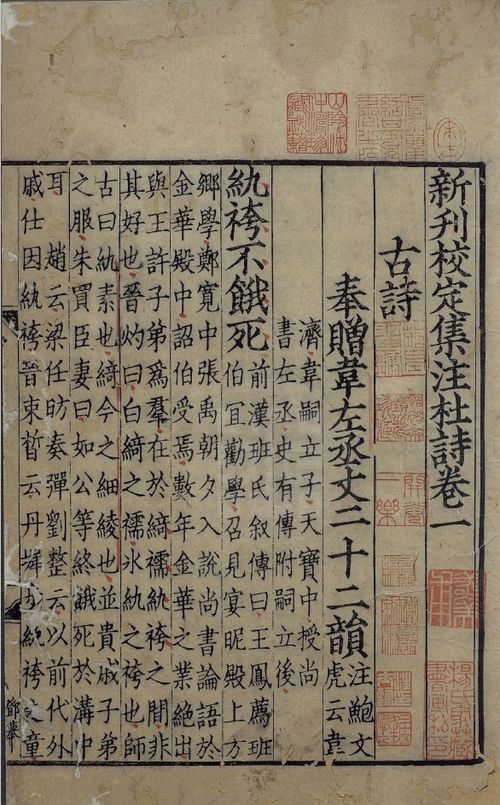 新刊校定集注杜詩卷一
古詩
奉贈韋左丞丈二十二韻
注鮑文
虎云韋
濟韋嗣立子天寶中授尚
書左丞史有傳附嗣立後
紈袴不餓死
前漢班氏叙傳曰王鳳薦班
伯宜勸學召見宴昵殿上方
鄉學鄭寬中張禹朝夕入說尚書論語於
金華殿中詔伯受焉數年金華之業絶出
與王許子弟爲羣在於綺襦紈袴之間非
其好也晉灼曰白綺之襦氷紈之袴也師
古曰紈素也綺今之細綾也並貴戚子弟
之服朱買臣妻曰如公等終餓死於溝中
耳 趙云梁任昉奏彈劉整云以前代外
戚仕因紈袴晉束晳云丹墀步紈袴之童